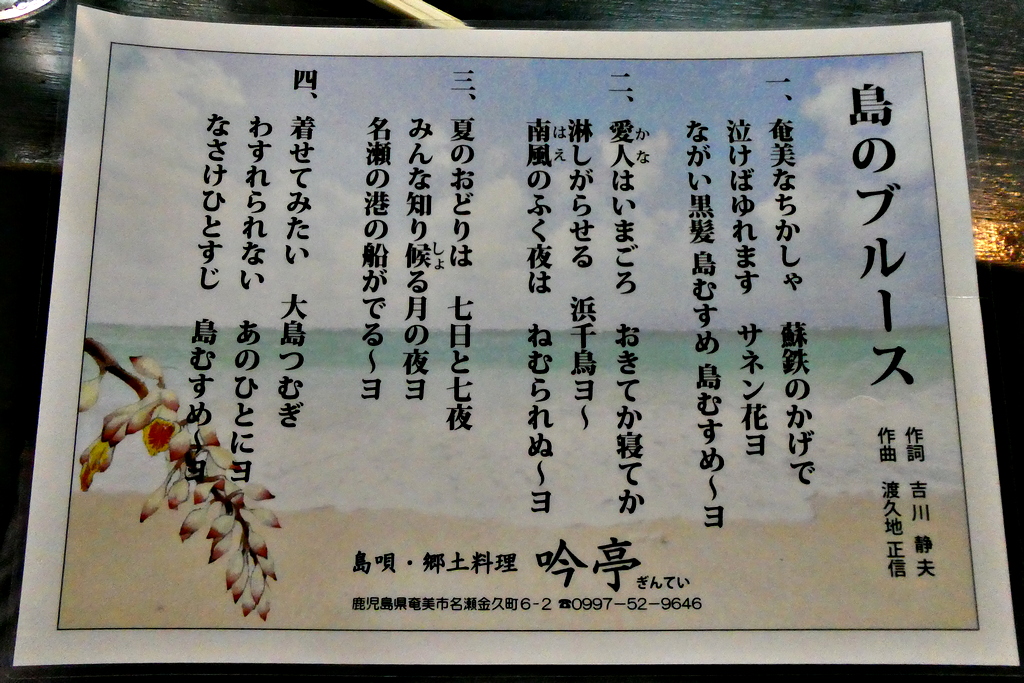 島のブルース
作詞 吉川 静夫
作曲 渡久地 正信
一、奄美なちかしゃ 蘇鉄のかげで
泣けばゆれます サネン花ヨ
ながい黒髪 島むすめ 島むすめ～ヨ
二、愛人はいまごろ おきてか寝てか
かな
淋しがらせる 浜千鳥ヨ～
南風のふく夜は ねむられぬ～ヨ
はえ
三、夏のおどりは 七日と七夜
みんな知り候る月の夜ヨ
しょ
名瀬の港の船がでる～ヨ
四、着せてみたい 大島つむぎ
わすれられない あのひとにヨ
なさけひとすじ 島むすめ～ヨ
島唄・郷土料理 吟亭 ぎんてい
鹿児島県奄美市名瀬金久町6-2 ☎0997-52-9646